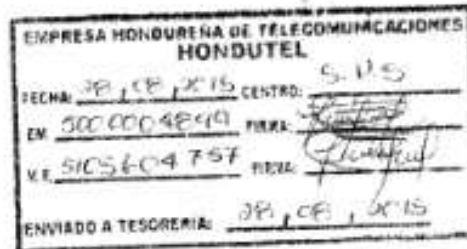 EMPRESA HONDUREÑA DE TELECOMUNICACIONES
HONDUTEL
FECHA: 28, 08, 2015 CENTRO: S.P.S
EM 5000004899 FIRMA:
V.F. 5105604757 FIRMA:
ENVIADO A TESORERIA: 28, 08, 2015